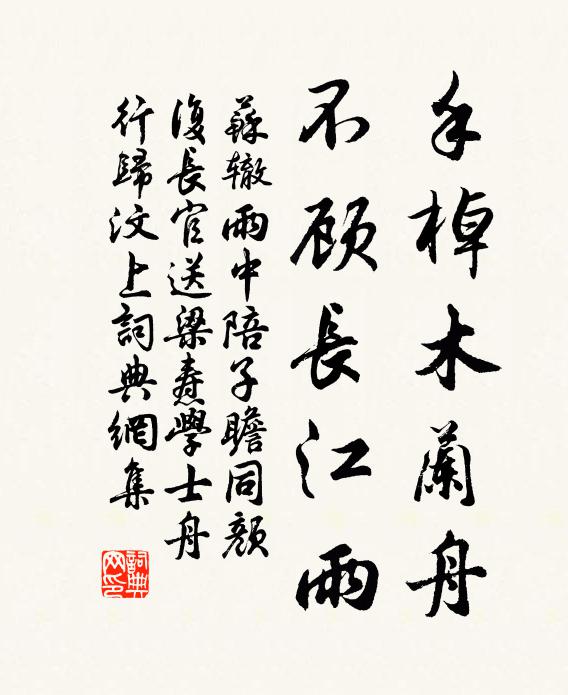 手棹木蘭舟
不顾長江雨
蘇轍雨中陪子瞻同顏
復長官送梁燾學士舟
行歸汶上詞典網集
詞典
网印